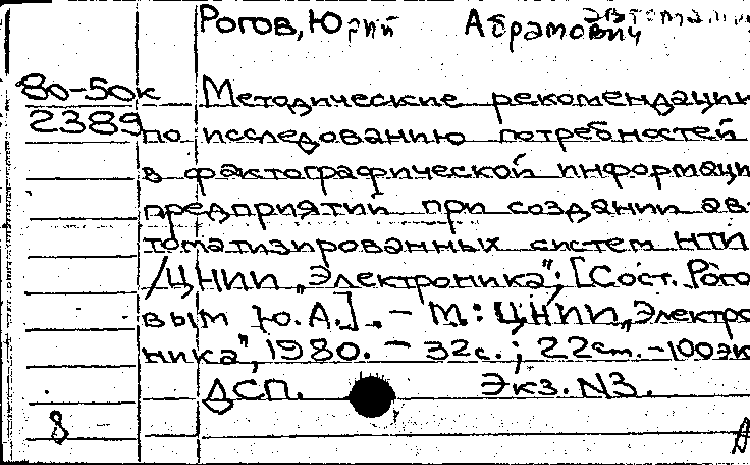 Рогов, Юрий Абрамович
80-50к Методические рекомендации
2389 по исследованию потребностей
в фактографической информаци
предприятий при создании ав-
томатизированных систем НТИ
/ЦНИИ „Электроника"; [Сост. Рого
вым Ю.А.]. - М.: ЦНИИ „Электро
ника", 1980. - 32с.; 22см. - 100эк
ДСП. Экз. N3.
8